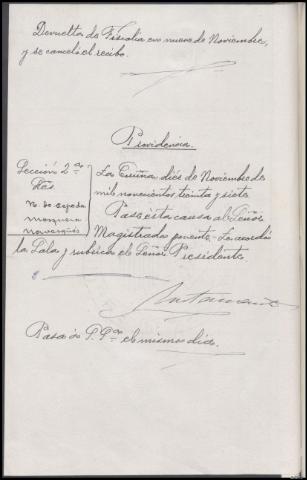 Devuelta de Fiscalia en nueve de Noviembre,
y se canceló el recibo.
Providencia.
Sección 2ª
Sres.
La Coruña diez de Noviembre de
mil novecientos treinta y siete
Pase esta causa al Señor
Magistrado ponente. Lo acordó
la Sala y rubrica el Señor Presidente
Pasa á P. Pte el mismo dia.